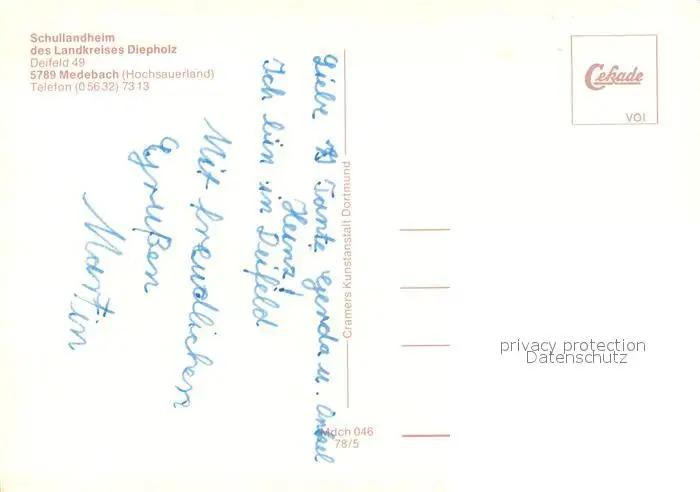 Schullandheim
des Landkreises Diepholz
Deifeld 49
5789 Medebach (Hochsauerland)
Telefon (0 56 32) 73 13
Liebe Tante Gerda u. Onkel
Heinz!
Ich bin in Deifeld
Mit freundlichen
Grußen
Martin
Cramers Kunstanstalt Dortmund
Mdch 046
78/5
Cekade
VOI
privacy protection
Datenschutz